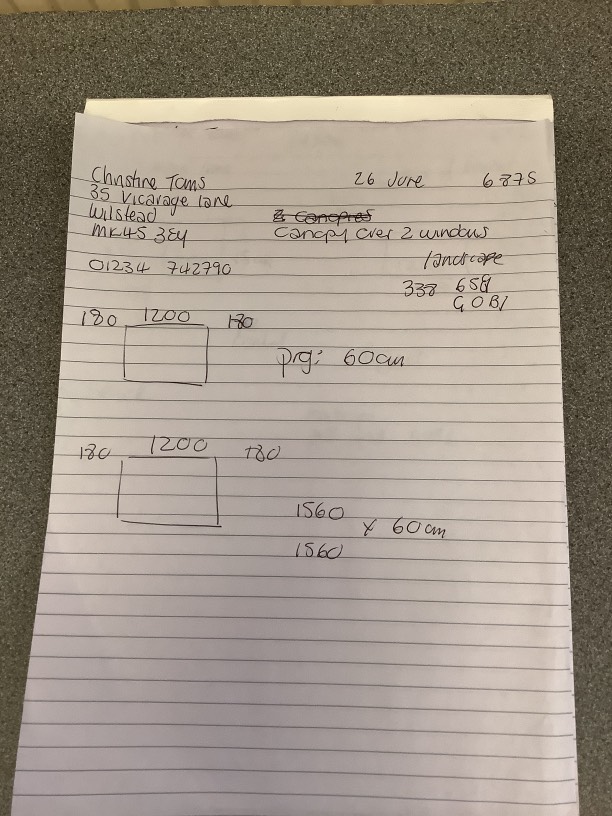 Christine Toms 26 June 6875
35 Vicarage lane
Wilstead 2 Canopies
MK45 3EY Canopy over 2 windows
01234 742790 landscape
338 659
GOBI
180 1200 180
prg: 60cm
180 1200 180
1560
x 60cm
1560